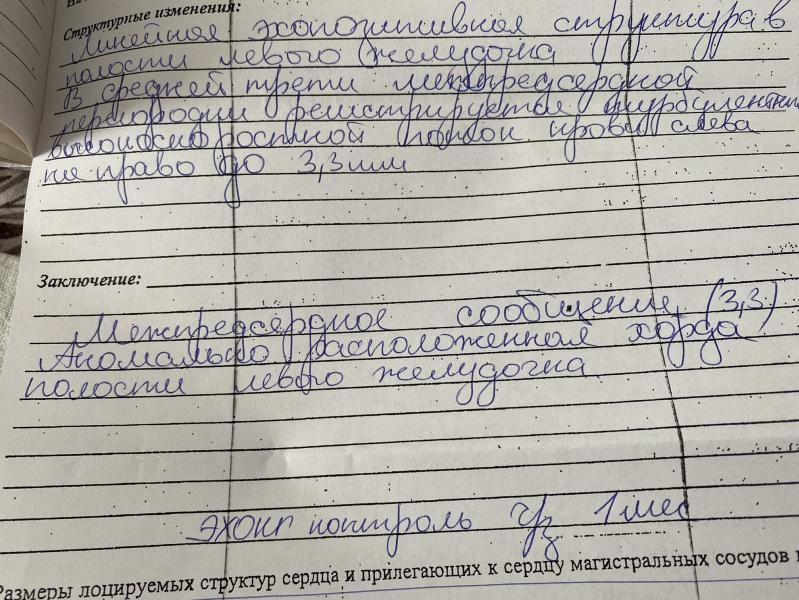 Структурные изменения:
Линейная эхопозитивная структура в
полости левого желудочка
В средней трети межпредсердной
перегородки регистрируется турбулентный
высокоскоростной поток крови слева
на право до 3,3 мм
Заключение:
Межпредсердное сообщение (3,3)
Аномально расположенная хорда
полости левого желудочка
ЭХОКГ контроль чз 1 мес
Размеры лоцируемых структур сердца и прилегающих к сердцу магистральных сосудов